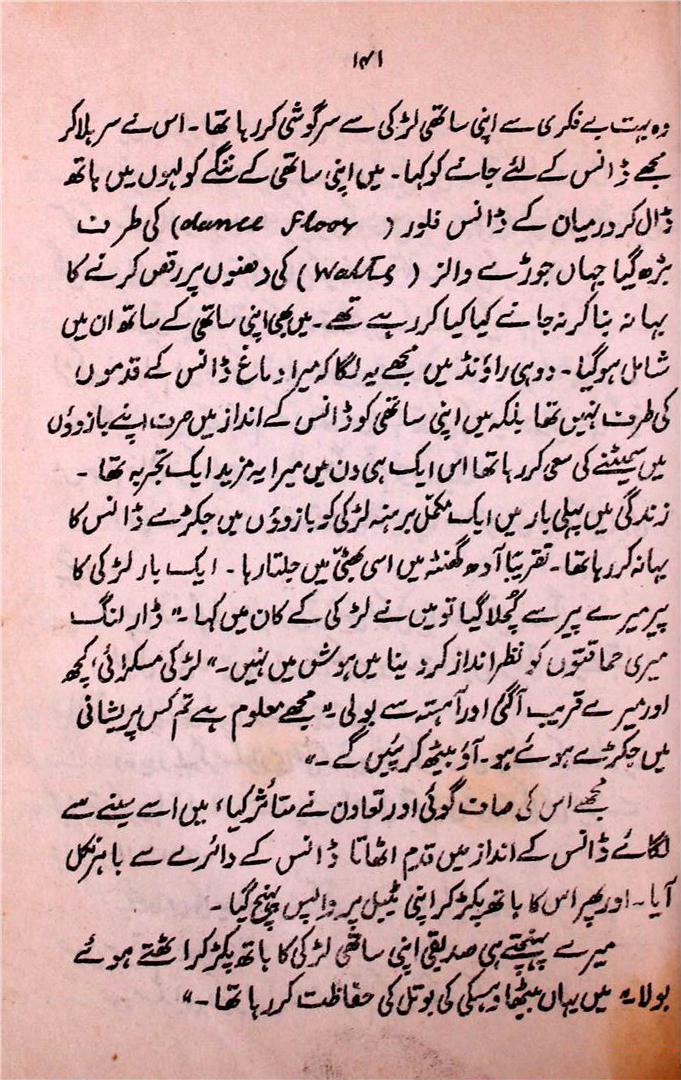 ۱۴۱
وہ بہت بے فکری سے اپنی ساتھی لڑکی سے سرگوشی کر رہا تھا۔ اس نے سر ہلا کر
مجھے ڈانس کے لئے جانے کو کہا۔ میں اپنی ساتھی کے ننگے کولہوں میں ہاتھ
ڈال کر درمیان کے ڈانس فلور (dance floor) کی طرف
بڑھ گیا جہاں جوڑے والز (Waltz) کی دھنوں پر رقص کرنے کا
بہانہ بنا کر نہ جانے کیا کیا کر رہے تھے۔ میں بھی اپنی ساتھی کے ساتھ ان میں
شامل ہو گیا۔ دو ہی راؤنڈ میں مجھے یہ لگا کہ میرا دماغ ڈانس کے قدموں
کی طرف نہیں تھا بلکہ میں اپنی ساتھی کو ڈانس کے انداز میں صرف اپنے بازوؤں
میں سمیٹنے کی سعی کر رہا تھا اس ایک ہی دن میں میرا یہ مزید ایک تجربہ تھا ۔
زندگی میں پہلی بار میں ایک مکمل برہنہ لڑکی کو بازوؤں میں جکڑے ڈانس کا
بہانہ کر رہا تھا۔ تقریباً آدھ گھنٹہ میں اسی بھٹی میں جلتا رہا۔ ایک بار لڑکی کا
پیر میرے پیر سے کُچلا گیا تو میں نے لڑکی کے کان میں کہا۔ ”ڈارلنگ
میری حماقتوں کو نظر انداز کر دینا میں ہوش میں نہیں۔“ لڑکی مسکرائی، کچھ
اور میرے قریب آ گئی اور آہستہ سے بولی۔ ”مجھے معلوم ہے تم کس پریشانی
میں جکڑے ہوئے ہو۔ آؤ بیٹھ کر پئیں گے۔“
مجھے اس کی صاف گوئی اور تعاون نے متاثر کیا، میں اسے سینے سے
لگائے ڈانس کے انداز میں قدم اٹھاتا ڈانس کے دائرے سے باہر نکل
آیا۔ اور پھر اس کا ہاتھ پکڑ کر اپنی ٹیبل پر واپس پہنچ گیا۔
میرے پہنچتے ہی صدیقی اپنی ساتھی لڑکی کا ہاتھ پکڑ کر اٹھتے ہوئے
بولا۔ ”میں یہاں بیٹھا وہسکی کی بوتل کی حفاظت کر رہا تھا۔“